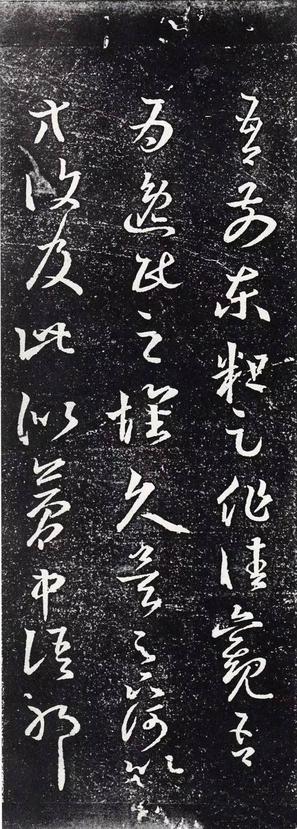 吾前東粗足作佳觀吾
爲逸民之懷久矣足下何以
方復及此似夢中語邪